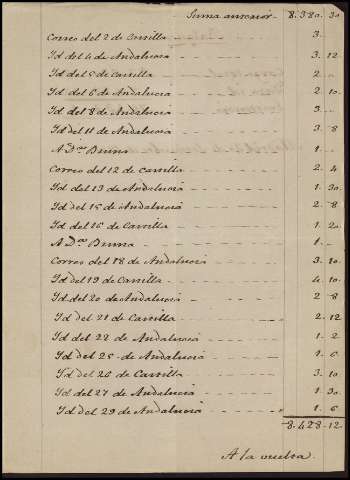 Suma anterior - 8.380.. 30
Correo del 2 de Castilla - 3..
Yd del 4 de Andalucia - 3.. 12
Yd del 5 de Castilla - 2..
Yd del 6 de Andalucia - 2.. 10
Yd del 8 de Andalucia - 3..
Yd del 11 de Andalucia - 3.. 8
A Dn Bruno - 1..
Correo del 12 de Castilla - 2.. 4
Yd del 13 de Andalucia - 1.. 30
Yd del 15 de Andalucia - 2.. 8
Yd del 16 de Castilla - 1..
A Dn Bruno - 1..
Correo del 18 de Andalucia - 3.. 10
Yd del 19 de Castilla - 4.. 10
Yd del 20 de Andalucia - 2.. 8
Yd del 21 de Castilla - 2.. 12
Yd del 22 de Andalucia - 1.. 2
Yd del 25 de Andalucia - 1.. 6
Yd del 26 de Castilla - 3.. 10
Yd del 27 de Andalucia - 1.. 30
Yd del 29 de Andalucia - 1.. 6
8.428.. 12..
A la vuelta.